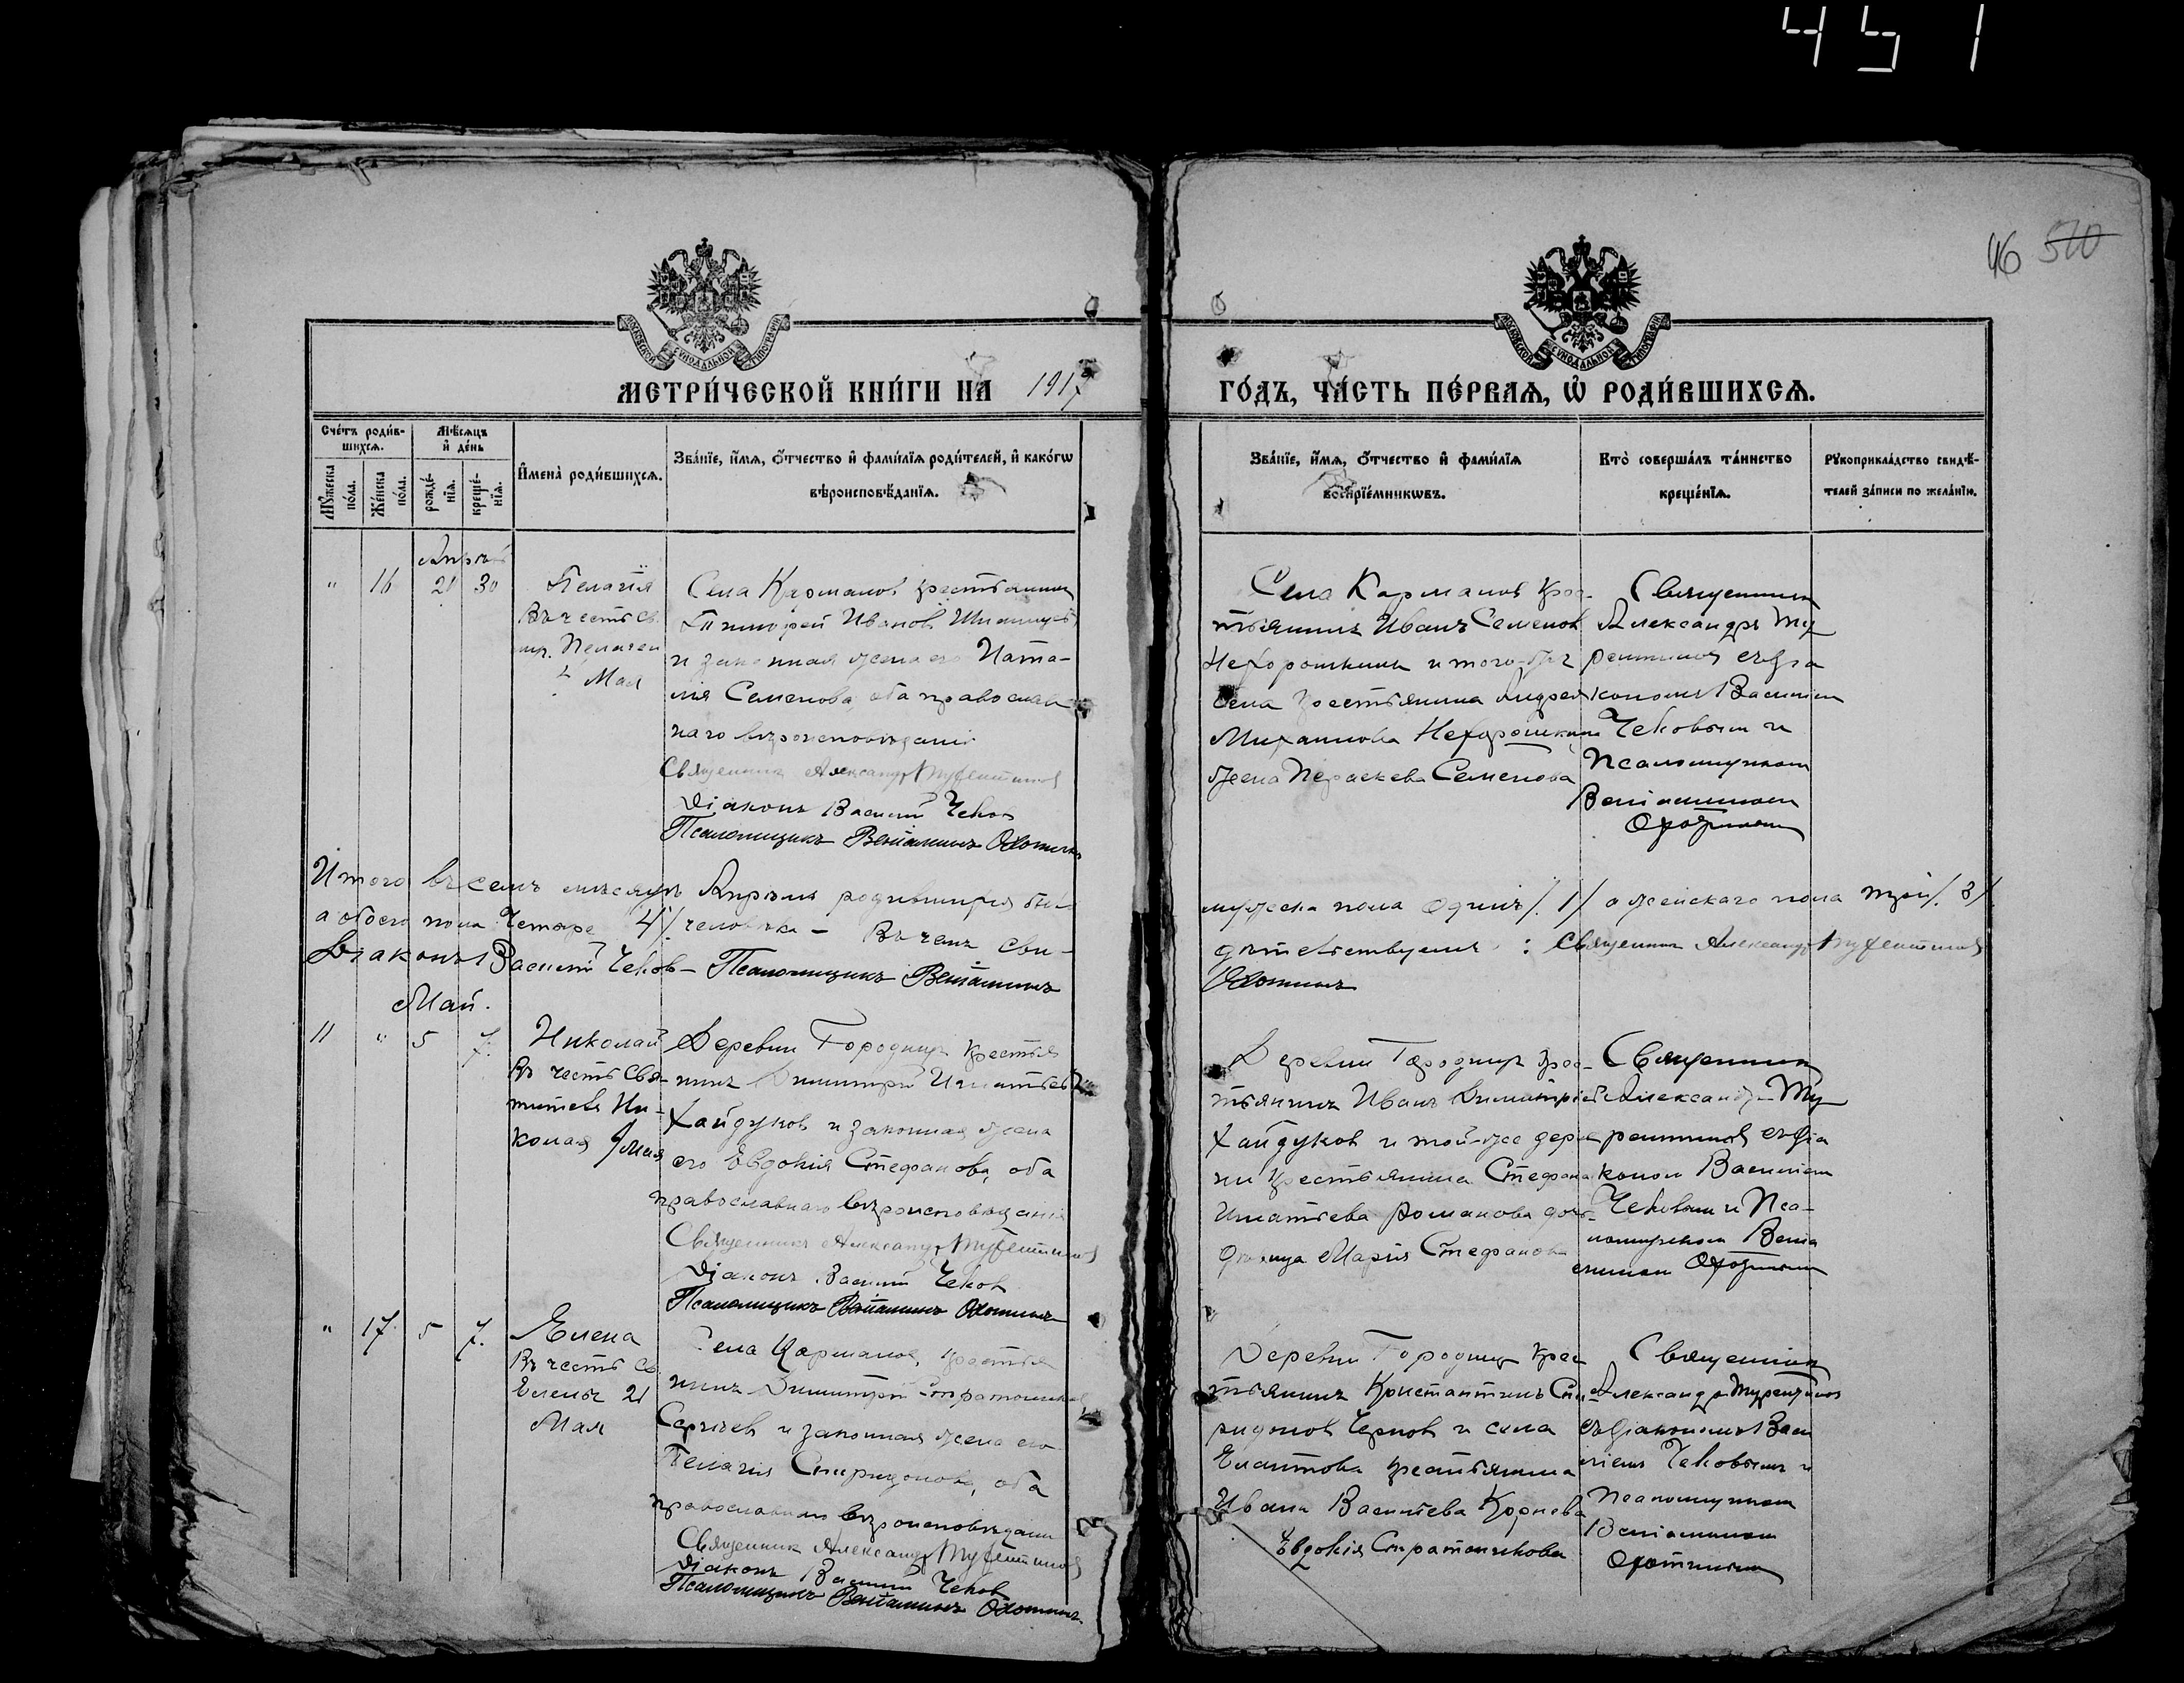 451
46 510
МОСКОВСКОЙ СУНОДАЛЬНОЙ ТИПОГРАФІИ
МОСКОВСКОЙ СУНОДАЛЬНОЙ ТИПОГРАФІИ
МЕТРИ́ЧЕСКОЙ КНИ́ГИ НА 1917
ГО́ДЪ, ЧА́СТЬ ПЕ́РВАѦ, Ѡ҆ РОДИ́ВШИХСѦ.
Сче́тъ роди́в-
шихсѧ.
Мꙋ́жеска
по́ла.
Же́нска
по́ла.
Мѣ́сѧцъ
и҆ де́нь
рожде́-
нїѧ.
креще́-
нїѧ.
И҆мена̀ роди́вшихсѧ.
Зва́нїе, и҆́мѧ, ѻ҆́тчество и҆ фами́лїѧ роди́телей, и҆ како́гѡ
вѣроисповѣ́данїѧ.
Зва́нїе, и҆́мѧ, ѻ҆́тчество и҆ фами́лїѧ
воспрїе́мникѡвъ.
Кто̀ соверша́лъ та́инство
креще́нїѧ.
Рꙋкоприкла́дство свидѣ́-
телей за́писи по жела́нїю.
Апрѣль
" 16 21 30
Пелагія
Въ честь св.
мц. Пелагеи
4 Мая
Села Карманова крестьянинъ
Тимофей Иванов
и законная жена его Ната-
лія Семенова оба православ
наго вѣроисповѣданія
Священникъ Александр Туберштинов
Діаконъ Василій Чеков
Псаломщикъ Веніаминъ Охотинъ
Села Карманова крес-
тьянинъ Иванъ Семенов
Нехорошкинъ и того-же
села крестьянина Андрея
Михаилова Нехорошкина
жена Параскева Семенова
Священник
Александръ Ту
съ діа
кономъ Василием
Чековым и
Псаломщиком
Веніамином
Охотиным
Итого въ семъ мѣсяцѣ Апрѣлѣ родившихся было
мужеска пола одинъ /1/ а женскаго пола три /3/
а обоего пола четыре /4/ человѣка – Въ чемъ сви-
дѣтельствуемъ : Священникъ Александр
Діаконъ Василій Чеков – Псаломщикъ Веніаминъ
Охотинъ
Май.
11 " 5 7.
Николай
Въ честь Свя-
тителя Ни-
колая 9 мая
Деревни Городищъ крестья
нинъ Димитрій Игнатьевъ
Хайдуков и законная жена
его Евдокія Стефанова, оба
православнаго вѣроисповѣданія
Священникъ Александр
Діаконъ Василій Чеков
Псаломщикъ Веніаминъ Охотинъ
Деревни Городищъ крес-
тьянинъ Иванъ Димитріев
Хайдуков и той-же дерев
ни крестьянина Стефана
Игнатьева Романова дочь
дѣвица Марія Стефанова
Священник
Александр Ту
съ діа
коном Василіем
Чековым и Пса-
ломщиком Вениа
мином Охотиным
" 17. 5 7.
Елена
Въ честь св.
Елены 21
Мая
Села Карманова, крестья
нинъ Димитрій Стратоников
Сергѣев и законная жена его
Пелагія Спиридонова, оба
православнаго вѣроисповѣданія
Священник Александр
Діаконъ Василій Чеков
Псаломщикъ Веніаминъ Охотинъ
Деревни Городищъ крес
тьянинъ Константинъ Спи
ридонов Чернов и села
крестьянина
Ивана Васильева Корнева
Евдокія Стратоникова
Священник
Александр
съ діакономъ Васи
ліемъ Чековымъ и
Псаломщиком
Веніамином
Охотиным